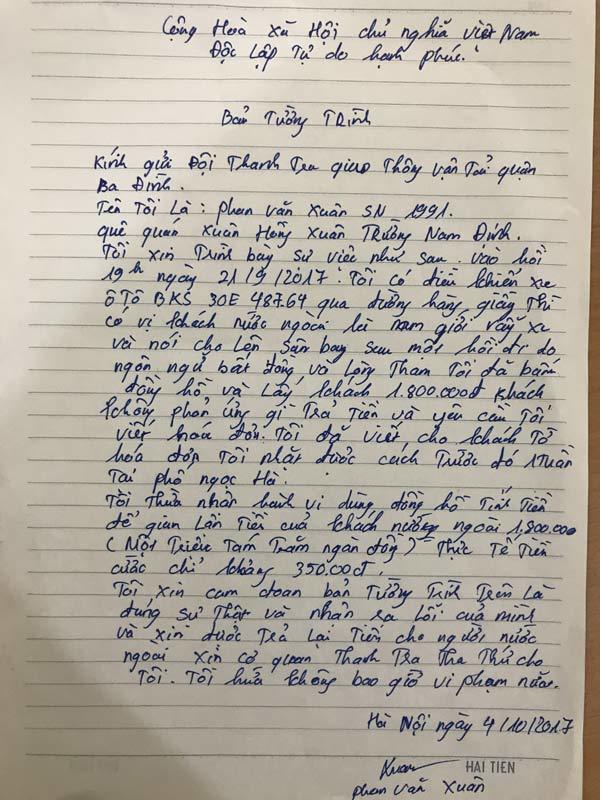 Cộng Hoà Xã Hội chủ nghĩa việt Nam
Độc Lập Tự do hạnh phúc.
Bản Tường TRình
Kính gửi Đội Thanh Tra giao Thông vận Tải quận
Ba Đình.
Tên Tôi Là : phan văn xuân SN 1991.
quê quán xuân Hồng Xuân TRường Nam Định.
Tôi xin Trình bày sự việc như sau. vào hồi
19h ngày 21/9/2017. Tôi có điều khiển xe
ô Tô BKS 30E 487.64 qua đường hàng giấy Thì
có vị khách nước ngoài là nam giới vẫy xe
và nói cho Lên Sân bay sau một hồi đi do
ngôn ngữ bất đồng và Lòng Tham Tôi đã bấm
đồng hồ và Lấy khách 1.800.000đ khách
không phản ứng gì Trả Tiền và yêu cầu Tôi
viết hoá đơn. Tôi đã viết cho khách Tờ
hóa đơn Tôi nhặt được cách Trước đó 1 Tuần
Tại phố ngọc Hà.
Tôi Thừa nhận hành vi dùng đồng hồ Tính Tiền
để gian Lận Tiền của khách nước ngoài 1,800.000
(Một Triệu Tám Trăm ngàn đồng) Thực Tế Tiền
cước chỉ khảng 350.00đ.
Tôi xin cam đoan bản Tường Trình Trên Là
đúng sự Thật và nhận ra Lỗi của mình
và xin được Trả Lại Tiền cho người nước
ngoài xin cơ quan Thanh Tra Tha Thứ cho
Tôi. Tôi hứa không bao giờ vi phạm nữa.
Hà Nội ngày 4/10/2017
Xuân
HAI TIEN
phan văn xuân